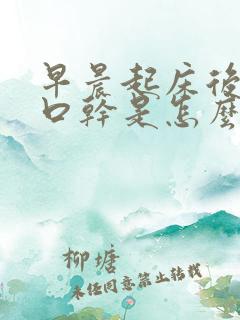 早晨起床後
口幹是怎麼
柳塘
未经同意禁止转载